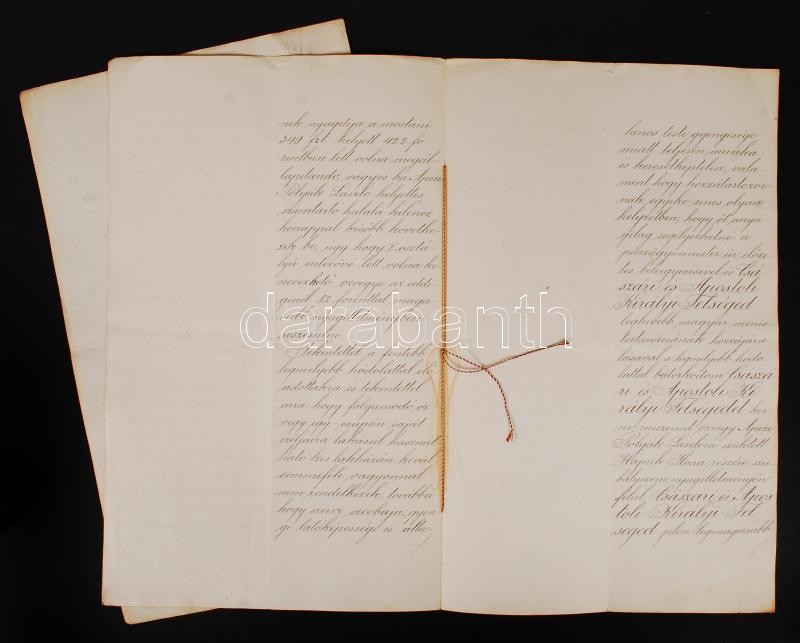 nek nyugdija a mostani
340 frt helyett 422 fo
rintban lett volna megál-
lapitandó, vagyis ha Apczi
Pólyák László helyettes
számtartó halála kilencz
hónappal később követke-
zik be, úgy hogy I. osztá-
lyú intézővé lett volna ki-
nevezhető, özvegye az eddi-
ginél 82 forinttal maga-
sabb nyugilletményben
részesülne.
Tekintettel a fentebb
legmélyebb hódolattal elő-
adottakra és tekintettel
arra, hogy folyamodó öz-
vegy egy csupán saját
czéljaira lakásúl használ-
ható kis lakházán kivül
semmiféle vagyonnal
nem rendelkezik, továbbá
hogy szervi szívbaja, gyön-
ge látóképessége és álta-
lános teste gyengesége
miatt teljesen munka-
és keresetképtelen, vala-
mint hogy hozzátartozói-
nak egyike sincs olyan
helyzetben, hogy őt anya-
gilag segélyezhetné a
pénzügyminister úr előze-
tes beleegyezésével és Csá-
szári és Apostoli
Királyi Felséged
leghívebb magyar minis-
tertanácsának hozzájáru-
lásával a legmélyebb hódo-
lattal bátorkodom Császá-
ri és Apostoli Ki-
rályi Felségedet kér-
ni, miszerint özvegy Apczi
Pólyák Lászlóné született
Hajnik Ilona részére sza-
bályszerű nyugilletményén
felül, Császári és Apos-
toli Királyi Fel
séged jelen legmagasabb
darabanth